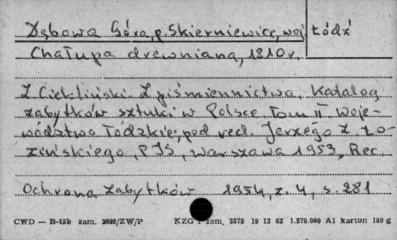 Dębowa Góra, p. Skierniewice, woj Łódź
Chałupa drewniana, 1810 r.
Z. Ciekliński. Z piśmiennictwa. Katalog
zabytków sztuki w Polsce Tom II Woje-
wództwo Łódzkie, pod red. Jerzego Z. Ło-
zińskiego, PIS, Warszawa 1953, Rec
Ochrona Zabytków 1954, z. 4, s. 281
CWD — B-15b zam. 2692/ZW/P KZG 1 zam. 2375 19 12 62 1.570.000 A1 karton 180 g